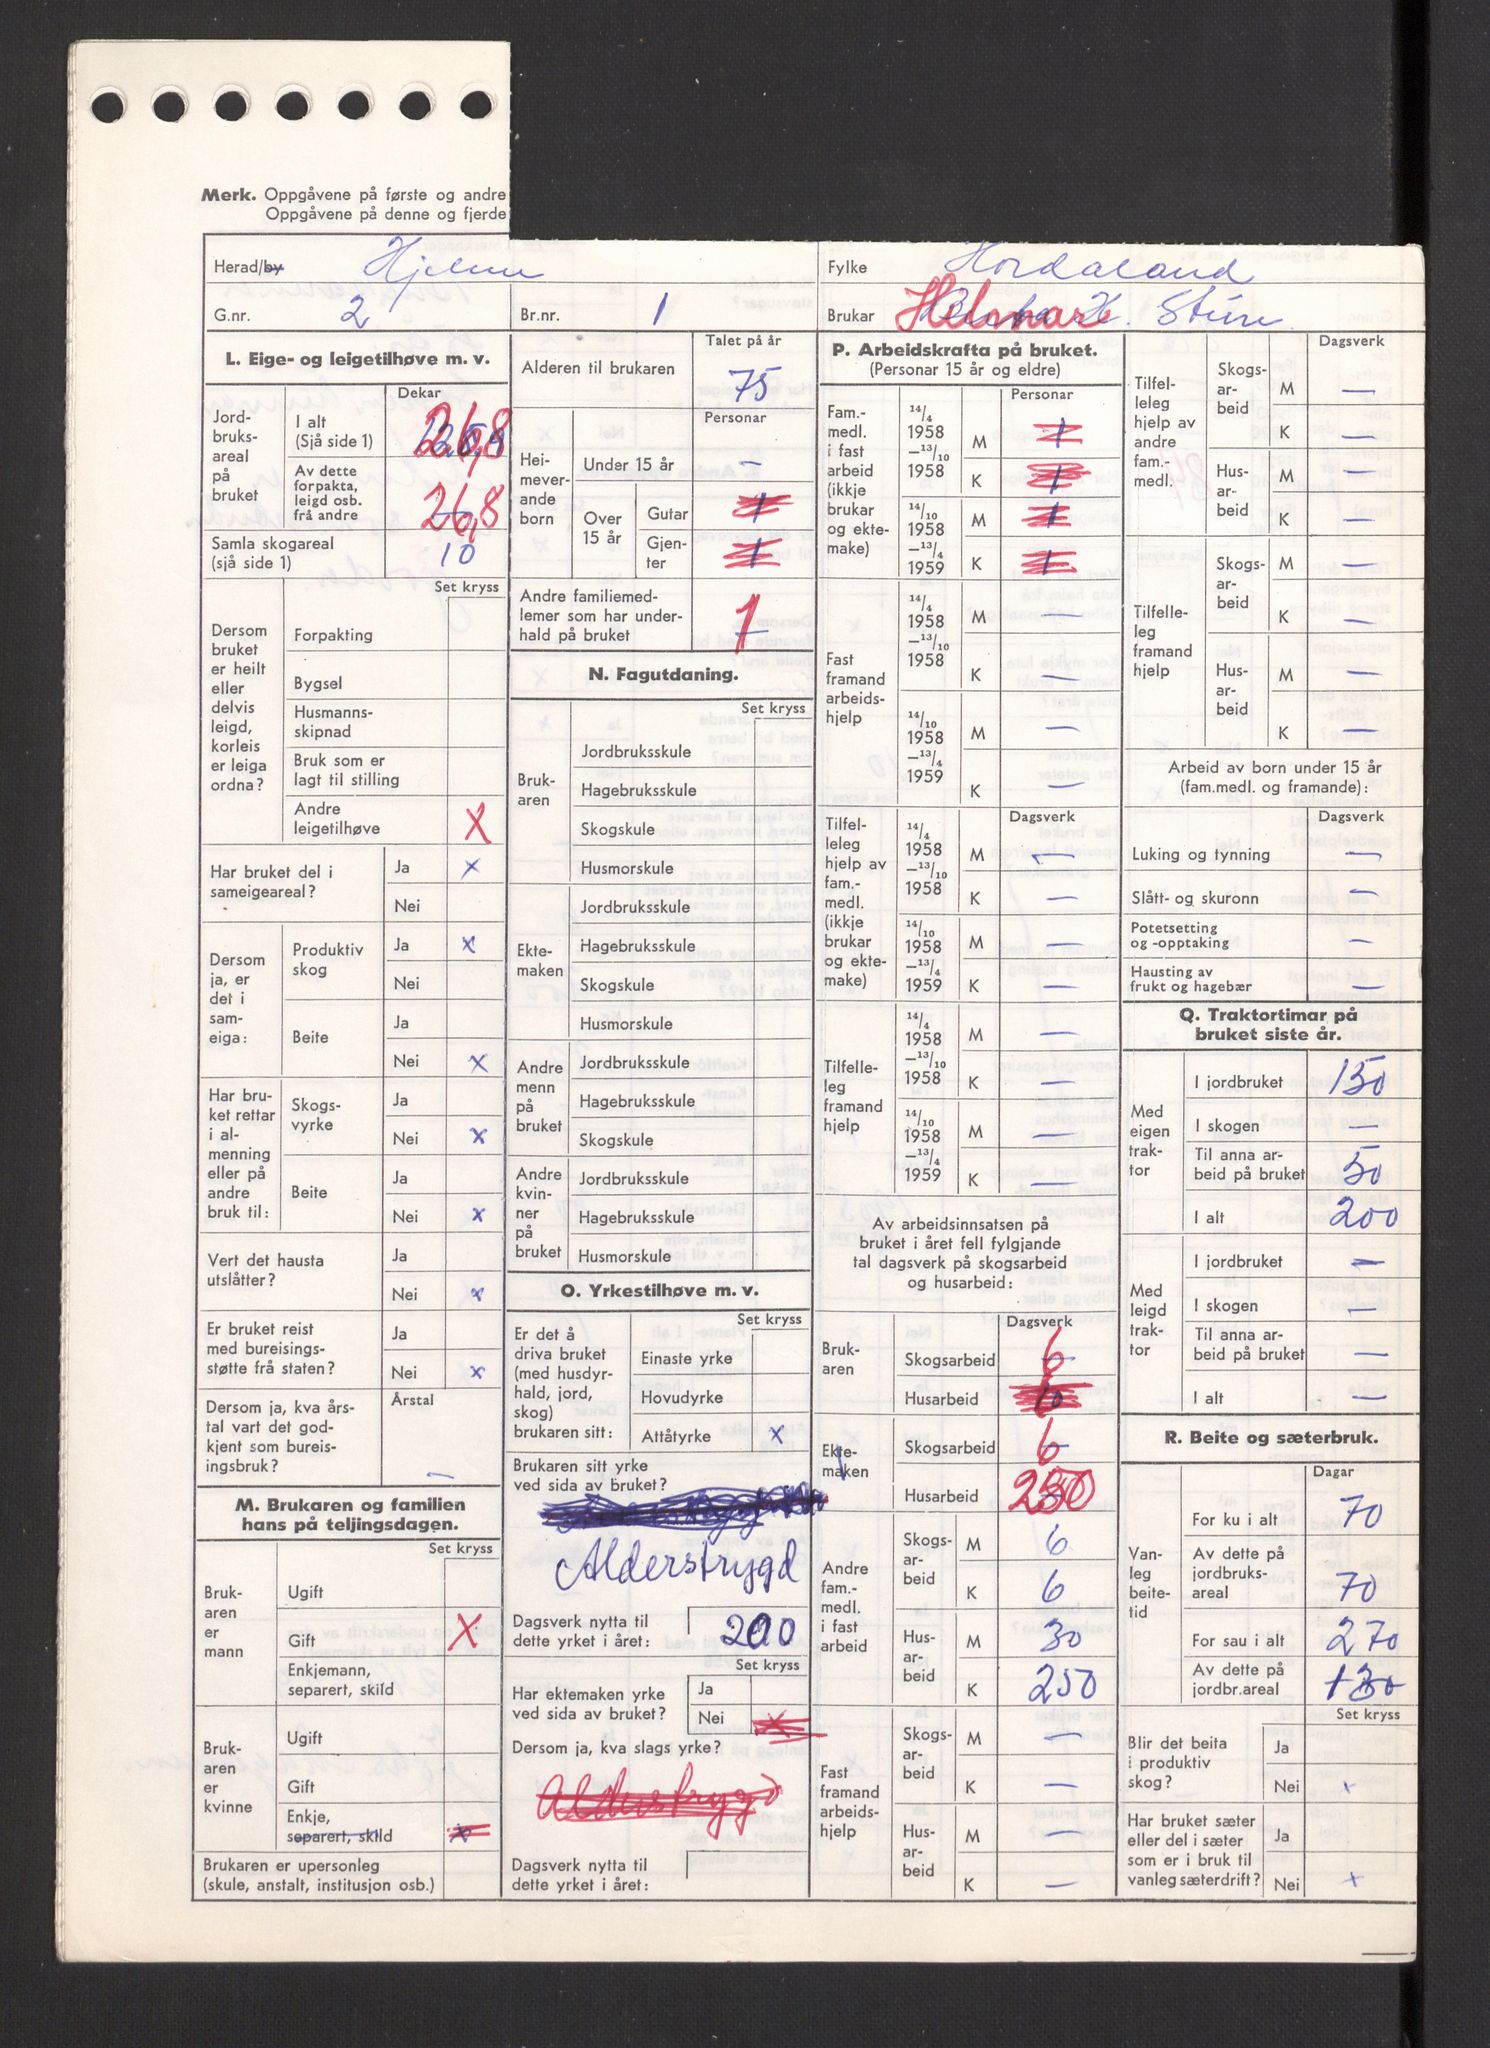 Merk. Oppgåvene på første og andre
Oppgåvene på denne og fjerde
Herad/by Hjelme
Fylke Hordaland
G.nr. 2
Br.nr. 1
Brukar Helmar Sture
L. Eige- og leigetilhøve m. v.
Dekar
Jord-
bruks-
areal
på
bruket
I alt
(Sjå side 1) 26,8
Av dette
forpakta,
leigd osb.
frå andre 26,8
Samla skogareal
(sjå side 1) 10
Set kryss
Dersom
bruket
er heilt
eller
delvis
leigd,
korleis
er leiga
ordna?
Forpakting
Bygsel
Husmanns-
skipnad
Bruk som er
lagt til stilling
Andre
leigetilhøve X
Har bruket del i
sameigeareal?
Ja x
Nei
Dersom
ja, er
det i
sam-
eiga:
Produktiv
skog
Ja x
Nei
Beite
Ja
Nei x
Har bru-
ket rettar
i al-
menning
eller på
andre
bruk til:
Skogs-
vyrke
Ja
Nei x
Beite
Ja
Nei x
Vert det hausta
utslåtter?
Ja
Nei x
Er bruket reist
med bureisings-
støtte frå staten?
Ja
Nei x
Dersom ja, kva års-
tal vart det god-
kjent som bureis-
ingsbruk?
Årstal
—
M. Brukaren og familien
hans på teljingsdagen.
Set kryss
Bruk-
aren
er
mann
Ugift
Gift X
Enkjemann,
separert, skild
Bruk-
aren
er
kvinne
Ugift
Gift
Enkje,
separert, skild x
Brukaren er upersonleg
(skule, anstalt, institusjon osb.)
Alderen til brukaren
Talet på år
75
Personar
Hei-
mever-
ande
born
Under 15 år —
Over
15 år
Gutar 1
Gjen-
ter 1
Andre familiemed-
lemer som har under-
hald på bruket 1
N. Fagutdaning.
Set kryss
Bruk-
aren
Jordbruksskule
Hagebruksskule
Skogskule
Husmorskule
Ekte-
maken
Jordbruksskule
Hagebruksskule
Skogskule
Husmorskule
Andre
menn
på
bruket
Jordbruksskule
Hagebruksskule
Skogskule
Andre
kvin-
ner
på
bruket
Jordbruksskule
Hagebruksskule
Husmorskule
O. Yrkestilhøve m. v.
Set kryss
Er det å
driva bruket
(med husdyr-
hald, jord,
skog)
brukaren sitt:
Einaste yrke
Hovudyrke
Attåtyrke x
Brukaren sitt yrke
ved sida av bruket?
Alderstrygd
Dagsverk nytta til
dette yrket i året: 200
Set kryss
Har ektemaken yrke
ved sida av bruket?
Ja
Nei x
Dersom ja, kva slags yrke?
Alderstrygd
Dagsverk nytta til
dette yrket i året:
P. Arbeidskrafta på bruket.
(Personar 15 år og eldre)
Personar
Fam.-
medl.
i fast
arbeid
(ikkje
brukar
og ekte-
make)
14/4
1958
—13/10
1958
M 1
K 1
14/10
1958
—13/4
1959
M 1
K 1
Fast
framand
arbeids-
hjelp
14/4
1958
—13/10
1958
M —
K —
14/10
1958
—13/4
1959
M —
K —
Dagsverk
Tilfel-
leleg
hjelp av
fam.-
medl.
(ikkje
brukar
og ekte-
make)
14/4
1958
—13/10
1958
M —
K —
14/10
1958
—13/4
1959
M —
K —
Tilfelle-
leg
framand
hjelp
14/4
1958
—13/10
1958
M —
K —
14/10
1958
—13/4
1959
M —
K —
Av arbeidsinnsatsen på
bruket i året fell fylgjande
tal dagsverk på skogsarbeid
og husarbeid:
Dagsverk
Bruk-
aren
Skogsarbeid 6
Husarbeid 10
Ekte-
maken
Skogsarbeid 6
Husarbeid 250
Andre
fam.-
medl.
i fast
arbeid
Skogs-
ar-
beid
M 6
K 6
Hus-
ar-
beid
M 30
K 250
Fast
framand
arbeids-
hjelp
Skogs-
ar-
beid
M —
K —
Hus-
ar-
beid
M —
K —
Dagsverk
Tilfel-
leleg
hjelp av
andre
fam.-
medl.
Skogs-
ar-
beid
M —
K —
Hus-
ar-
beid
M —
K —
Tilfelle-
leg
framand
hjelp
Skogs-
ar-
beid
M —
K —
Hus-
ar-
beid
M —
K —
Arbeid av born under 15 år
(fam.medl. og framande):
Dagsverk
Luking og tynning —
Slått- og skuronn —
Potetsetting
og -opptaking —
Hausting av
frukt og hagebær —
Q. Traktortimar på
bruket siste år.
Med
eigen
trak-
tor
I jordbruket 150
I skogen —
Til anna ar-
beid på bruket 50
I alt 200
Med
leigd
trak-
tor
I jordbruket —
I skogen —
Til anna ar-
beid på bruket —
I alt —
R. Beite og sæterbruk.
Dagar
Van-
leg
beite-
tid
For ku i alt 70
Av dette på
jordbruks-
areal 70
For sau i alt 270
Av dette på
jordbr.areal 130
Set kryss
Blir det beita
i produktiv
skog?
Ja
Nei x
Har bruket sæter
eller del i sæter
som er i bruk til
vanleg sæterdrift?
Ja
Nei x